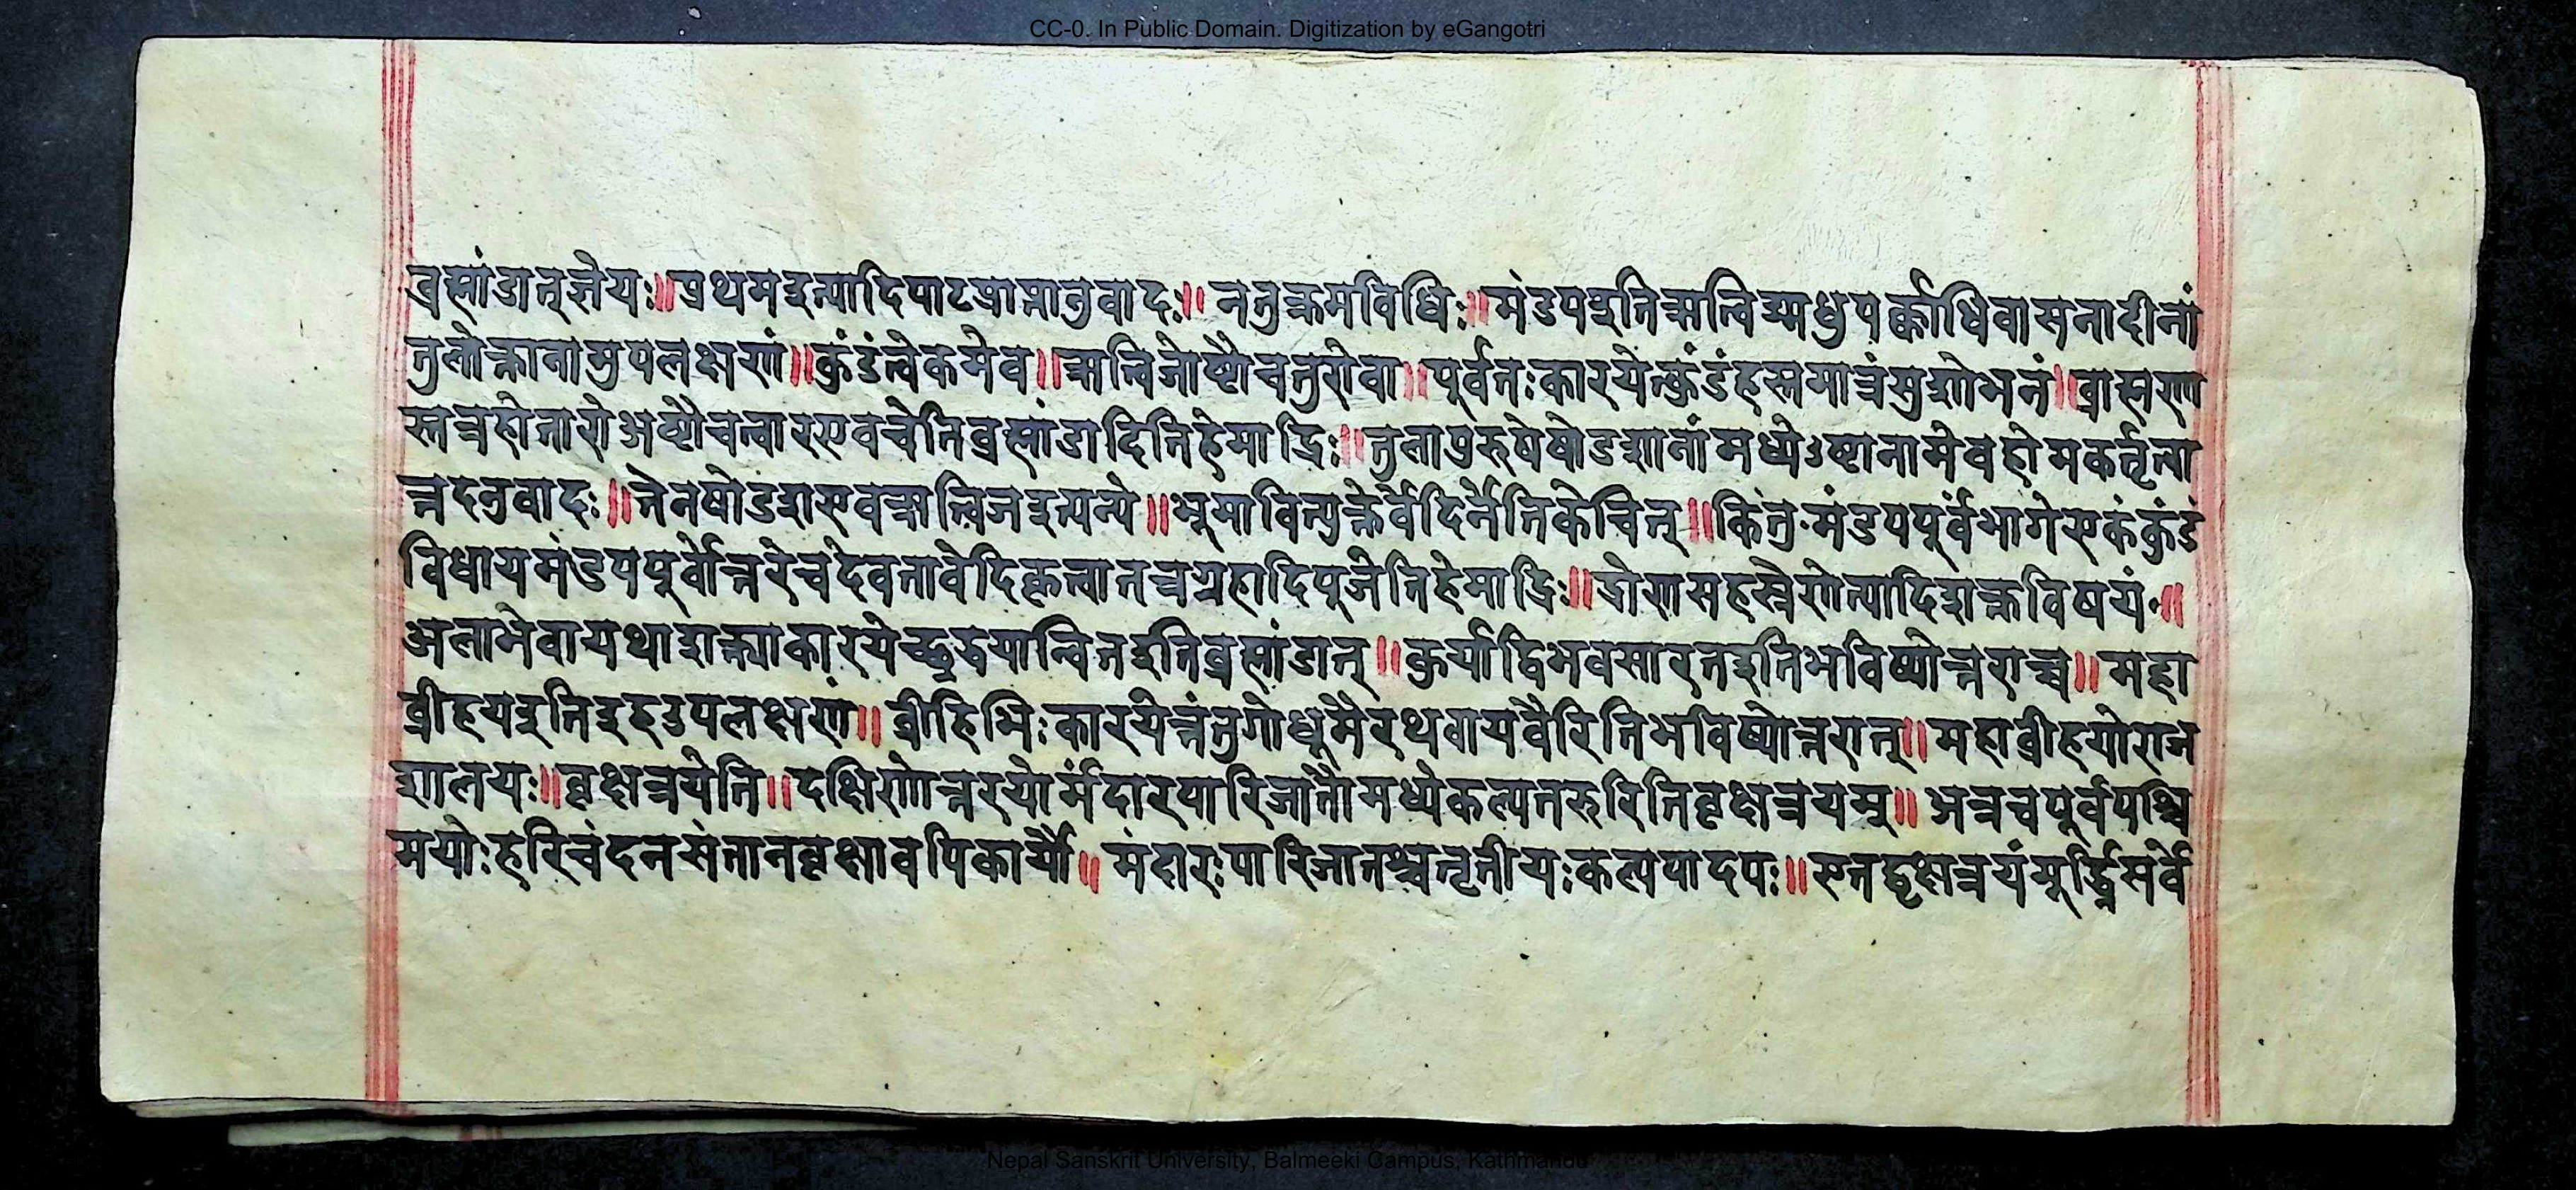 CC-0. In Public Domain. Digitization by eGangotri
ब्रह्मांडात्ज्ञेयः॥प्रथमइत्यादिपाटप्राप्तानुवादः॥ नतुक्रमविधिः॥मंडपइतिऋत्विङ्मधुपर्क्काधिवासनादीनां
तुलोक्तानामुपलक्षणं॥कुंडंत्वेकमेव॥ऋत्विजोष्टौचतुरोवा॥पूर्वतःकारयेत्कुंडंहस्तमात्रंसुशोभनं॥ब्राह्मण
स्तत्रहोतारोअष्टौचत्वारएवचेतिब्रह्मांडादितिहेमाद्रिः॥तुलापुरुषेषोडशानांमध्येऽष्टानामेवहोमकर्तृत्वा
त्तदनुवादः॥तेनषोडशएवऋत्विजइत्यन्ये॥भूमावित्युक्तेर्वेदिर्नेतिकेचित्॥किंतुमंडपपूर्वभागेएकंकुंडं
विधायमंडपपूर्वोत्तरेचदेवतावेदिकृत्वातत्रग्रहादिपूजेतिहेमाद्रिः॥द्रोणसहस्रेणेत्यादिशक्तविषयं॥
अलाभेवायथाशक्त्याकारयेच्छ्रद्धयान्वितइतिब्रह्मांडात्॥कुर्याद्विभवसारतइतिभविष्योत्तराच्च॥महा
व्रीहयइतिइहउपलक्षणं॥व्रीहिभिःकारयेत्तंतुगोधूमैरथवायवैरितिभविष्योत्तरात्॥महाव्रीहयोराज
शालयः॥वृक्षत्रयेति॥दक्षिणोत्तरयोर्मंदारपारिजातौमध्येकल्पतरुरितिवृक्षत्रयम्॥अत्रचपूर्वपश्चि
मयोःहरिचंदनसंतानवृक्षावपिकार्यौ॥मंदारःपारिजातश्चतृतीयःकल्पपादपः॥एतद्वृक्षत्रयंमूर्द्ध्निसर्वे
Nepal Sanskrit University, Balmeeki Campus, Kathmandu